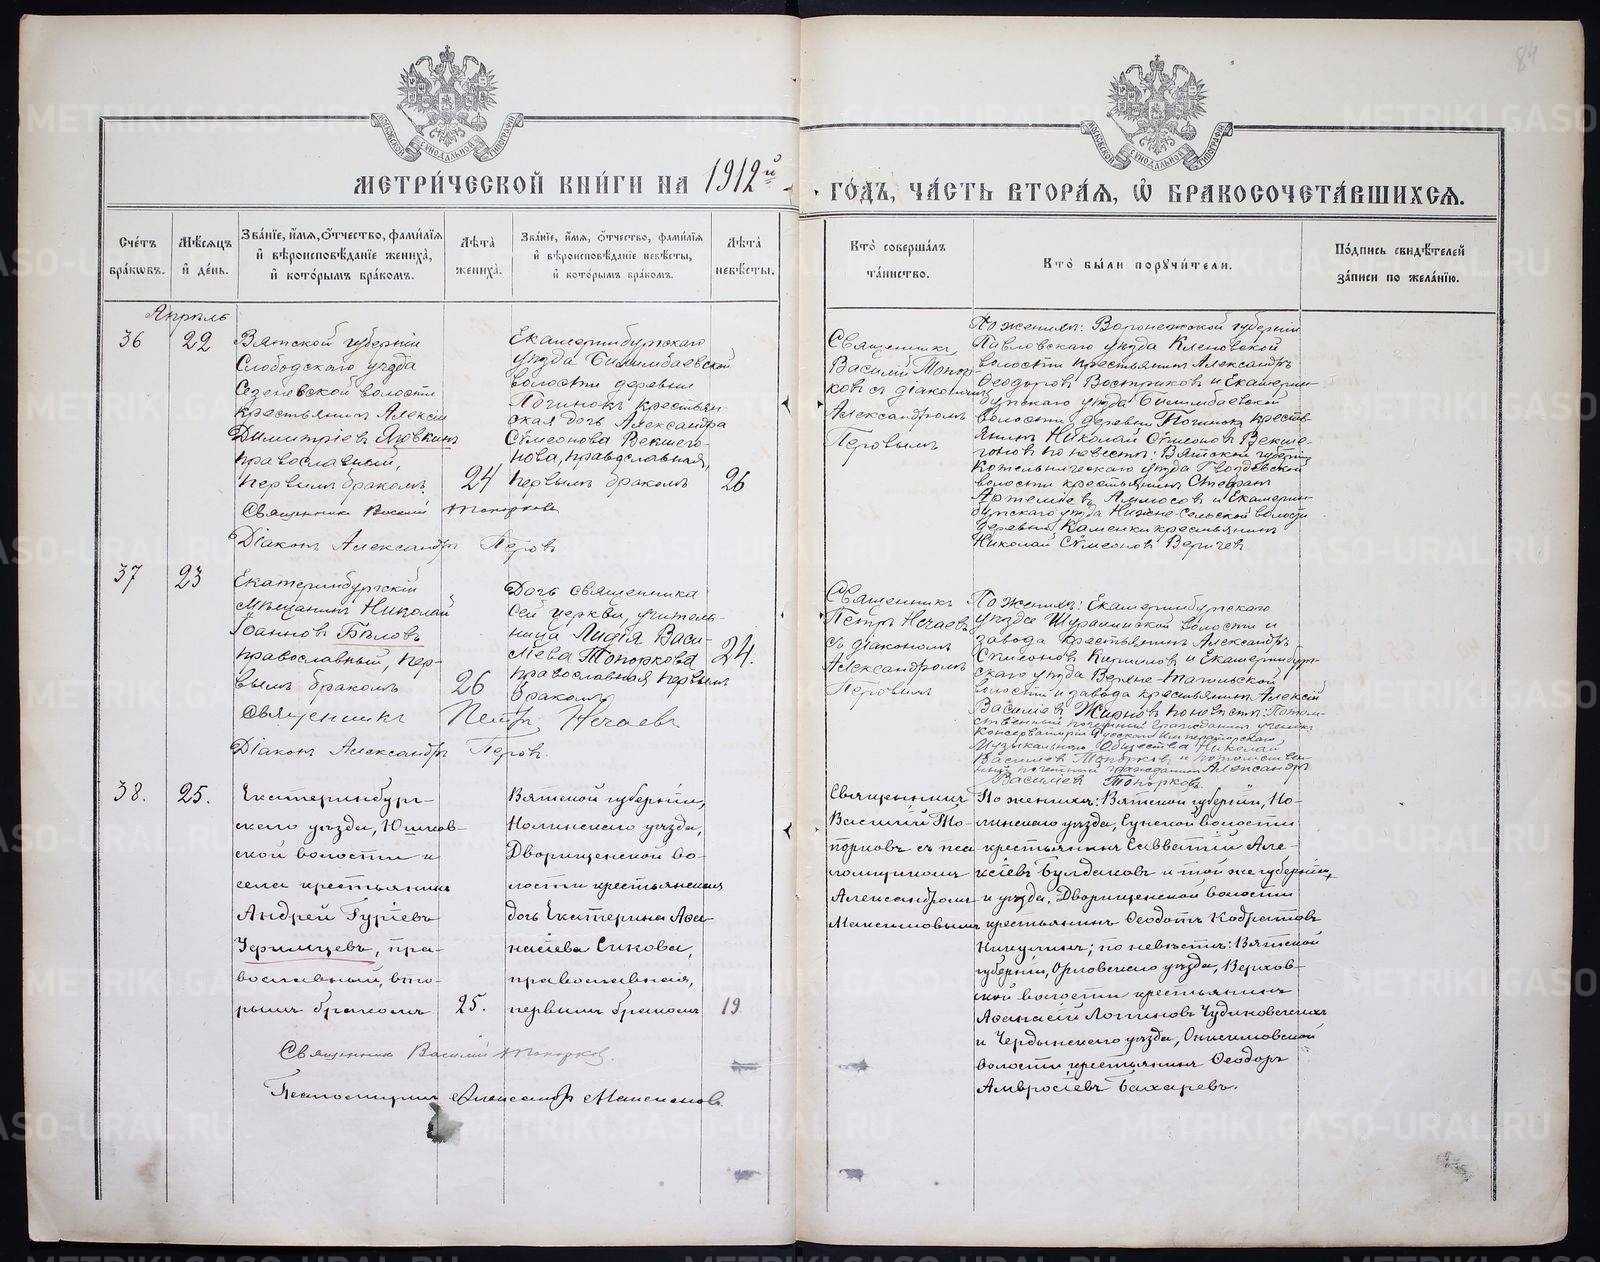 84
МЕТРИ́ЧЕСКОЙ КНИ́ГИ НА 1912й ГО́ДЪ, ЧА́СТЬ ВТОРА́Я, Ѿ БРАКОСОЧЕТА́ВШИХСЯ.
Сче́тъ бра́ковъ.
Мѣ́сяцъ и́ де́нь.
Зва́нїе, и́мя, о́тчество, фами́лїя и́ вѣроисповѣ́данїе жениха̀, и́ кото́рымъ бра́комъ.
Лѣ́та̀ жениха̀.
Зва́нїе, и́мя, о́тчество, фами́лїя и́ вѣроисповѣ́данїе невѣ́сты, и́ кото́рымъ бра́комъ.
Лѣ́та̀ невѣ́сты.
Кто̀ соверша́лъ та́инство.
Кто̀ бы́ли порꙋчи́тели.
По́дпись свидѣ́телей за́писи по жела́нїю.
Апрѣль
36
22
Вятской губерніи
Слободскаго уѣзда
Сезеневской волости
крестьянинъ Алексій
Димитріевъ Яговкинъ
православный,
первымъ бракомъ.
24
Екатеринбургскаго
уѣзда Билимбаевской
волости деревни
Починокъ крестьян-
ская дочь Александра
Сѵмеонова Векшего-
нова, православная,
первымъ бракомъ
26
Священникъ
Василій Топор-
ковъ съ діакономъ
Александромъ
Перовымъ
По женихѣ: Воронежской губерніи
Павловскаго уѣзда Кленовской
волости крестьянинъ Александръ
Ѳеодоровъ Востриковъ и Екатерин-
бургскаго уѣзда Билимбаевской
волости деревни Починка крестья-
янинъ Николай Сѵмеоновъ Векше-
гоновъ по невѣстѣ: Вятской губерніи
Котельническаго уѣзда Гвоздевской
волости крестьянинъ Стефанъ
Артеміевъ Аммосовъ и Екатерин-
бургскаго уѣзда Нижне-Сельской волости
деревни Каменки крестьянинъ
Николай Сѵмеоновъ Веричевъ
Священникъ Василій Топорковъ
Діаконъ Александръ Перовъ
37
23
Екатеринбургскій
мѣщанинъ Николай
Іоанновъ Бѣловъ
православный, пер-
вымъ бракомъ
26
Дочь священника
сей церкви, учитель-
ница Лидія Васи-
лиева Топоркова
православная первымъ
бракомъ
24.
Священникъ
Петръ Нечаевъ
съ діакономъ
Александромъ
Перовымъ
По женихѣ: Екатеринбургскаго
уѣзда Шуралинской волости и
завода крестьянинъ Александръ
Сѵмеоновъ Кирилловъ и Екатеринбург-
скаго уѣзда Верхне-Тагильской
волости и завода крестьянинъ Алексій
Василіевъ Жирновъ по невѣстѣ: Потом-
ственный почетный гражданинъ ученикъ
консерваторіи Русскаго Императорскаго
Музыкальнаго Общества Николай
Василіевъ Топорковъ и потомствен-
ный почетный гражданинъ Александръ
Василіевъ Топорковъ
Священникъ Петръ Нечаевъ
Діаконъ Александръ Перовъ.
38.
25.
Екатеринбург-
скаго уѣзда, Юшков-
ской волости и
села крестьянинъ
Андрей Гуріевъ
Уфимцевъ, пра-
вославный, вто-
рымъ бракомъ
25.
Вятской губерніи,
Нолинскаго уѣзда,
Дворищенской во-
лости крестьянская
дочь Екатерина Аѳа-
насіева Сикова,
православная,
первымъ бракомъ
19.
Священникъ
Василій То-
порковъ съ пса-
ломщикомъ
Александромъ
Максимовымъ
По женихѣ: Вятской губерніи, Но-
линскаго уѣзда, Сунской волости
крестьянинъ Савватій Але-
ксіевъ Булдаковъ и той же губерніи,
и уѣзда, Дворищенской волости
крестьянинъ Ѳеодотъ Кодратовъ
Никулинъ; по невѣстѣ: Вятской
губерніи, Орловскаго уѣзда, Верхов-
ской волости крестьянинъ
Аѳанасій Логиновъ Чудиновскихъ
и Чердынскаго уѣзда, Анисимовской
волости крестьянинъ Ѳеодоръ
Амвросіевъ Бахаревъ.
Священникъ Василій Топорковъ.
Псаломщикъ Александръ Максимовъ.